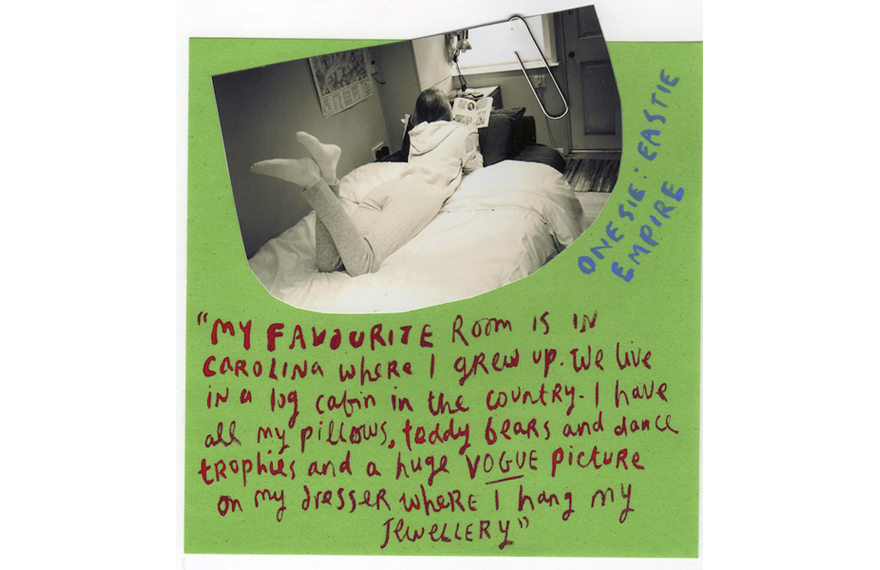 ONESIE: EASTIE
EMPIRE
"MY FAVOURITE ROOM IS IN
CAROLINA WHERE I GREW UP. WE LIVE
IN A LOG CABIN IN THE COUNTRY. I HAVE
ALL MY PILLOWS, TEDDY BEARS AND DANCE
TROPHIES AND A HUGE VOGUE PICTURE
ON MY DRESSER WHERE I HANG MY
JEWELLERY"